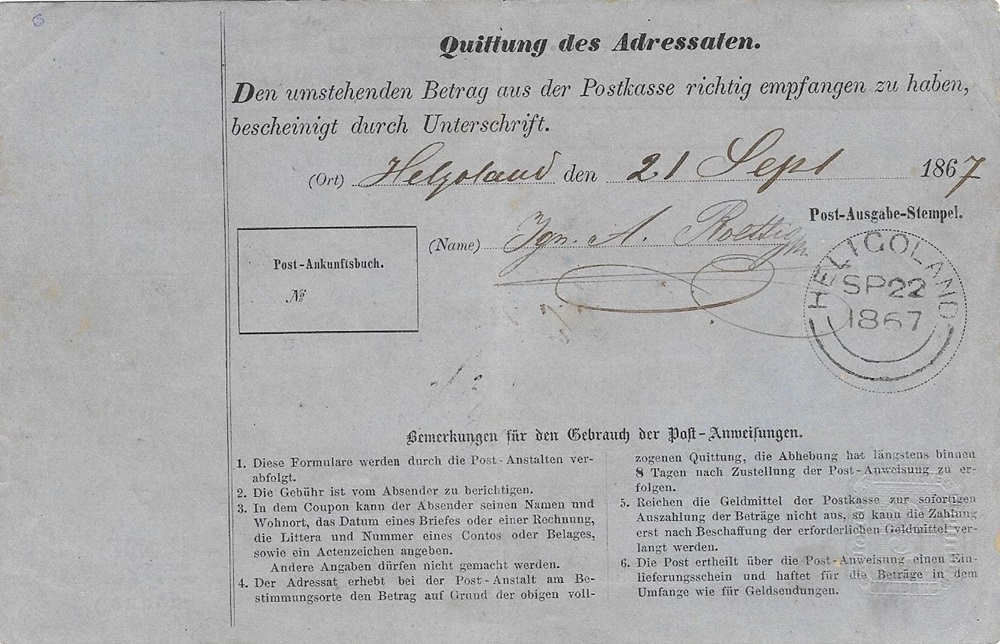 Quittung des Adressaten.
Den umstehenden Betrag aus der Postkasse richtig empfangen zu haben,
bescheinigt durch Unterschrift.
(Ort) Helgoland den 21 Sept 1867
Post-Ausgabe-Stempel.
(Name) Jgn. A.
Post-Ankunftsbuch.
№
HELIGOLAND
SP 22
1867
Bemerkungen für den Gebrauch der Post-Anweisungen.
1. Diese Formulare werden durch die Post-Anstalten ver-
abfolgt.
2. Die Gebühr ist vom Absender zu berichtigen.
3. In dem Coupon kann der Absender seinen Namen und
Wohnort, das Datum eines Briefes oder einer Rechnung,
die Littera und Nummer eines Contos oder Belages,
sowie ein Actenzeichen angeben.
Andere Angaben dürfen nicht gemacht werden.
4. Der Adressat erhebt bei der Post-Anstalt am Be-
stimmungsorte den Betrag auf Grund der obigen voll-
zogenen Quittung, die Abhebung hat längstens binnen
8 Tagen nach Zustellung der Post-Anweisung zu er-
folgen.
5. Reichen die Geldmittel der Postkasse zur sofortigen
Auszahlung der Beträge nicht aus, so kann die Zahlung
erst nach Beschaffung der erforderlichen Geldmittel ver-
langt werden.
6. Die Post ertheilt über die Post-Anweisung einen Ein-
lieferungsschein und haftet für die Beträge in dem
Umfange wie für Geldsendungen.